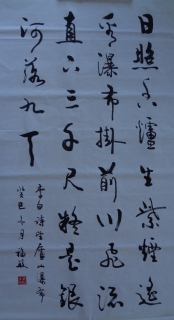 日照香爐生紫煙遙
看瀑布掛前川飛流
直下三千尺疑是銀
河落九天
李白詩望廬山瀑布
癸巳冬月